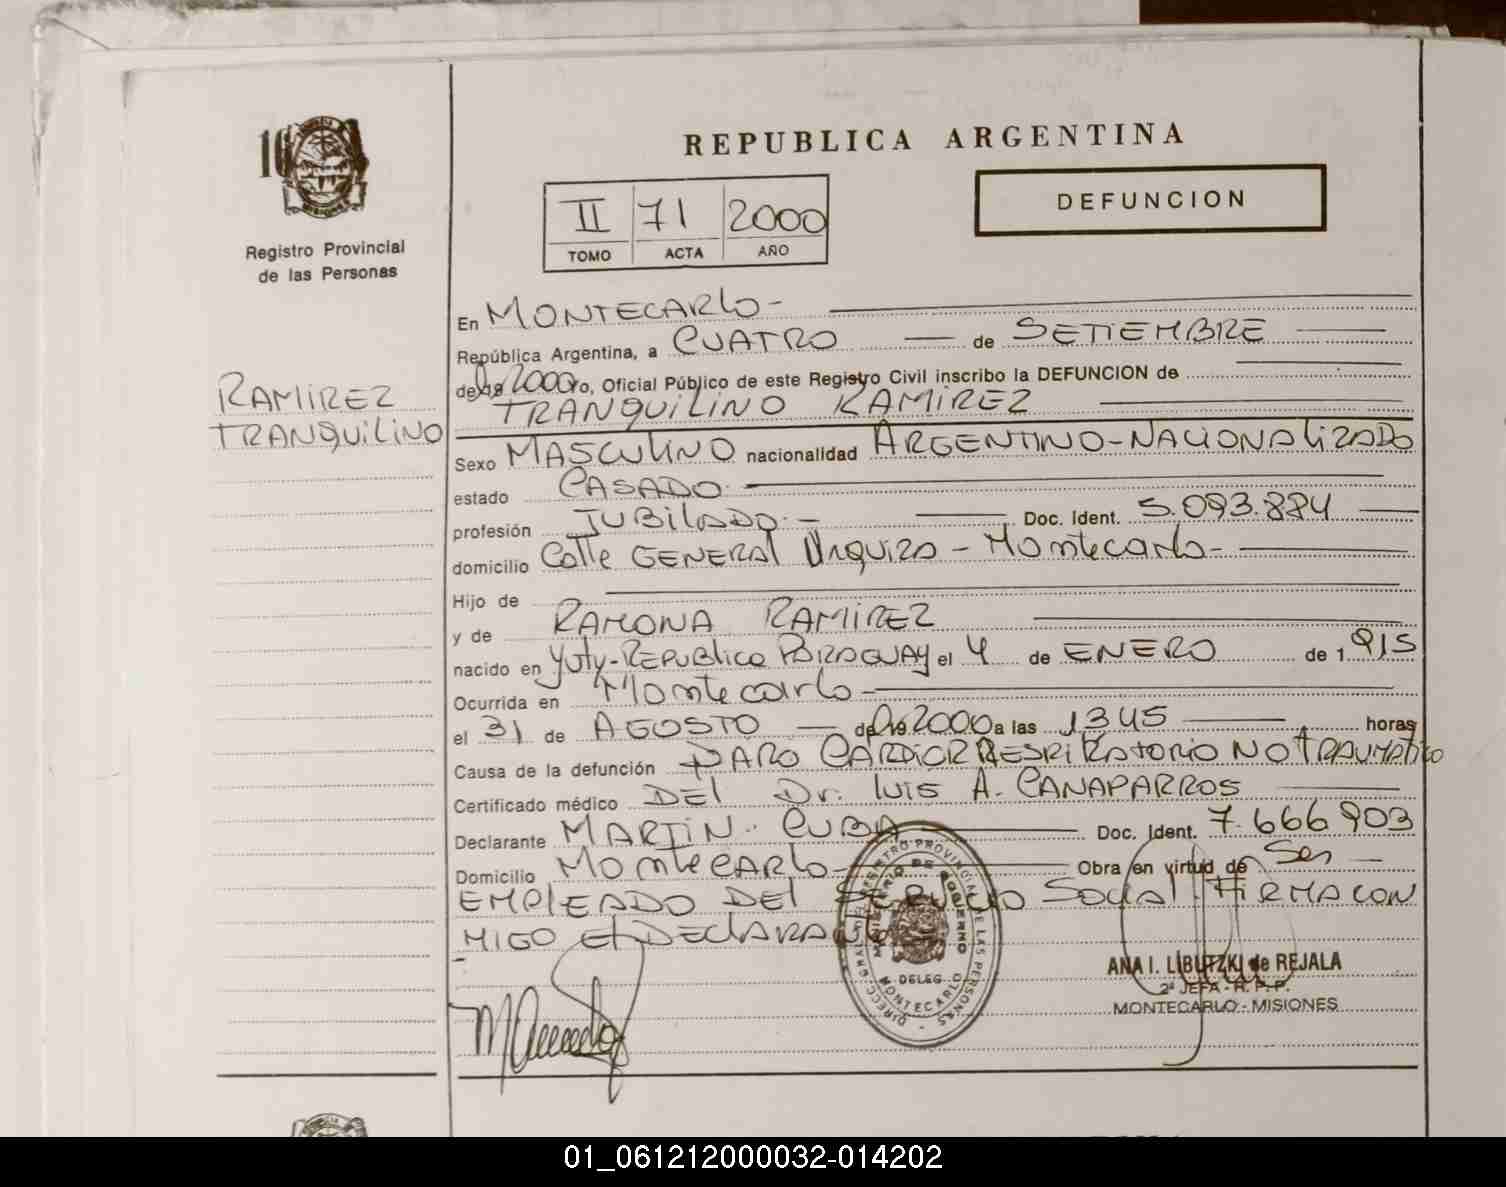 REPUBLICA ARGENTINA
DEFUNCION
II 71 2000
TOMO ACTA AÑO
Registro Provincial
de las Personas
RAMIREZ
TRANQUILINO
En MONTECARLO-
República Argentina, a CUATRO de SETIEMBRE
del 2000 yo, Oficial Público de este Registro Civil inscribo la DEFUNCION de
TRANQUILINO RAMIREZ
Sexo MASCULINO nacionalidad ARGENTINO-NACIONALIZADO
estado CASADO
profesión JUBILADO.- Doc. Ident. 5.093.884
domicilio Calle GENERAL URQUIZA - Montecarlo-
Hijo de
y de RAMONA RAMIREZ
nacido en Yuty-REPUBLICA PARAGUAY el 4 de ENERO de 1915
Ocurrida en Montecarlo-
el 31 de AGOSTO del 2000 a las 1345 horas
Causa de la defunción PARO CARDIORRESPIRATORIO NO TRAUMATICO
Certificado médico DEL Dr. LUIS A. CANAPARROS
Declarante MARTIN CUBA Doc. Ident. 7.666.903
Domicilio MONTECARLO- Obra en virtud de Ser
EMPLEADO DEL SERVICIO SOCIAL. FIRMA CON
MIGO El DECLARANTE
DIRECC. GRAL. DEL REGISTRO PROVINCIAL DE LAS PERSONAS
MINISTERIO DE GOBIERNO
DELEG.
MONTECARLO
ANA I. LIBUTZKI de REJALA
2ª JEFA - R. P. P.
MONTECARLO - MISIONES
01_061212000032-014202